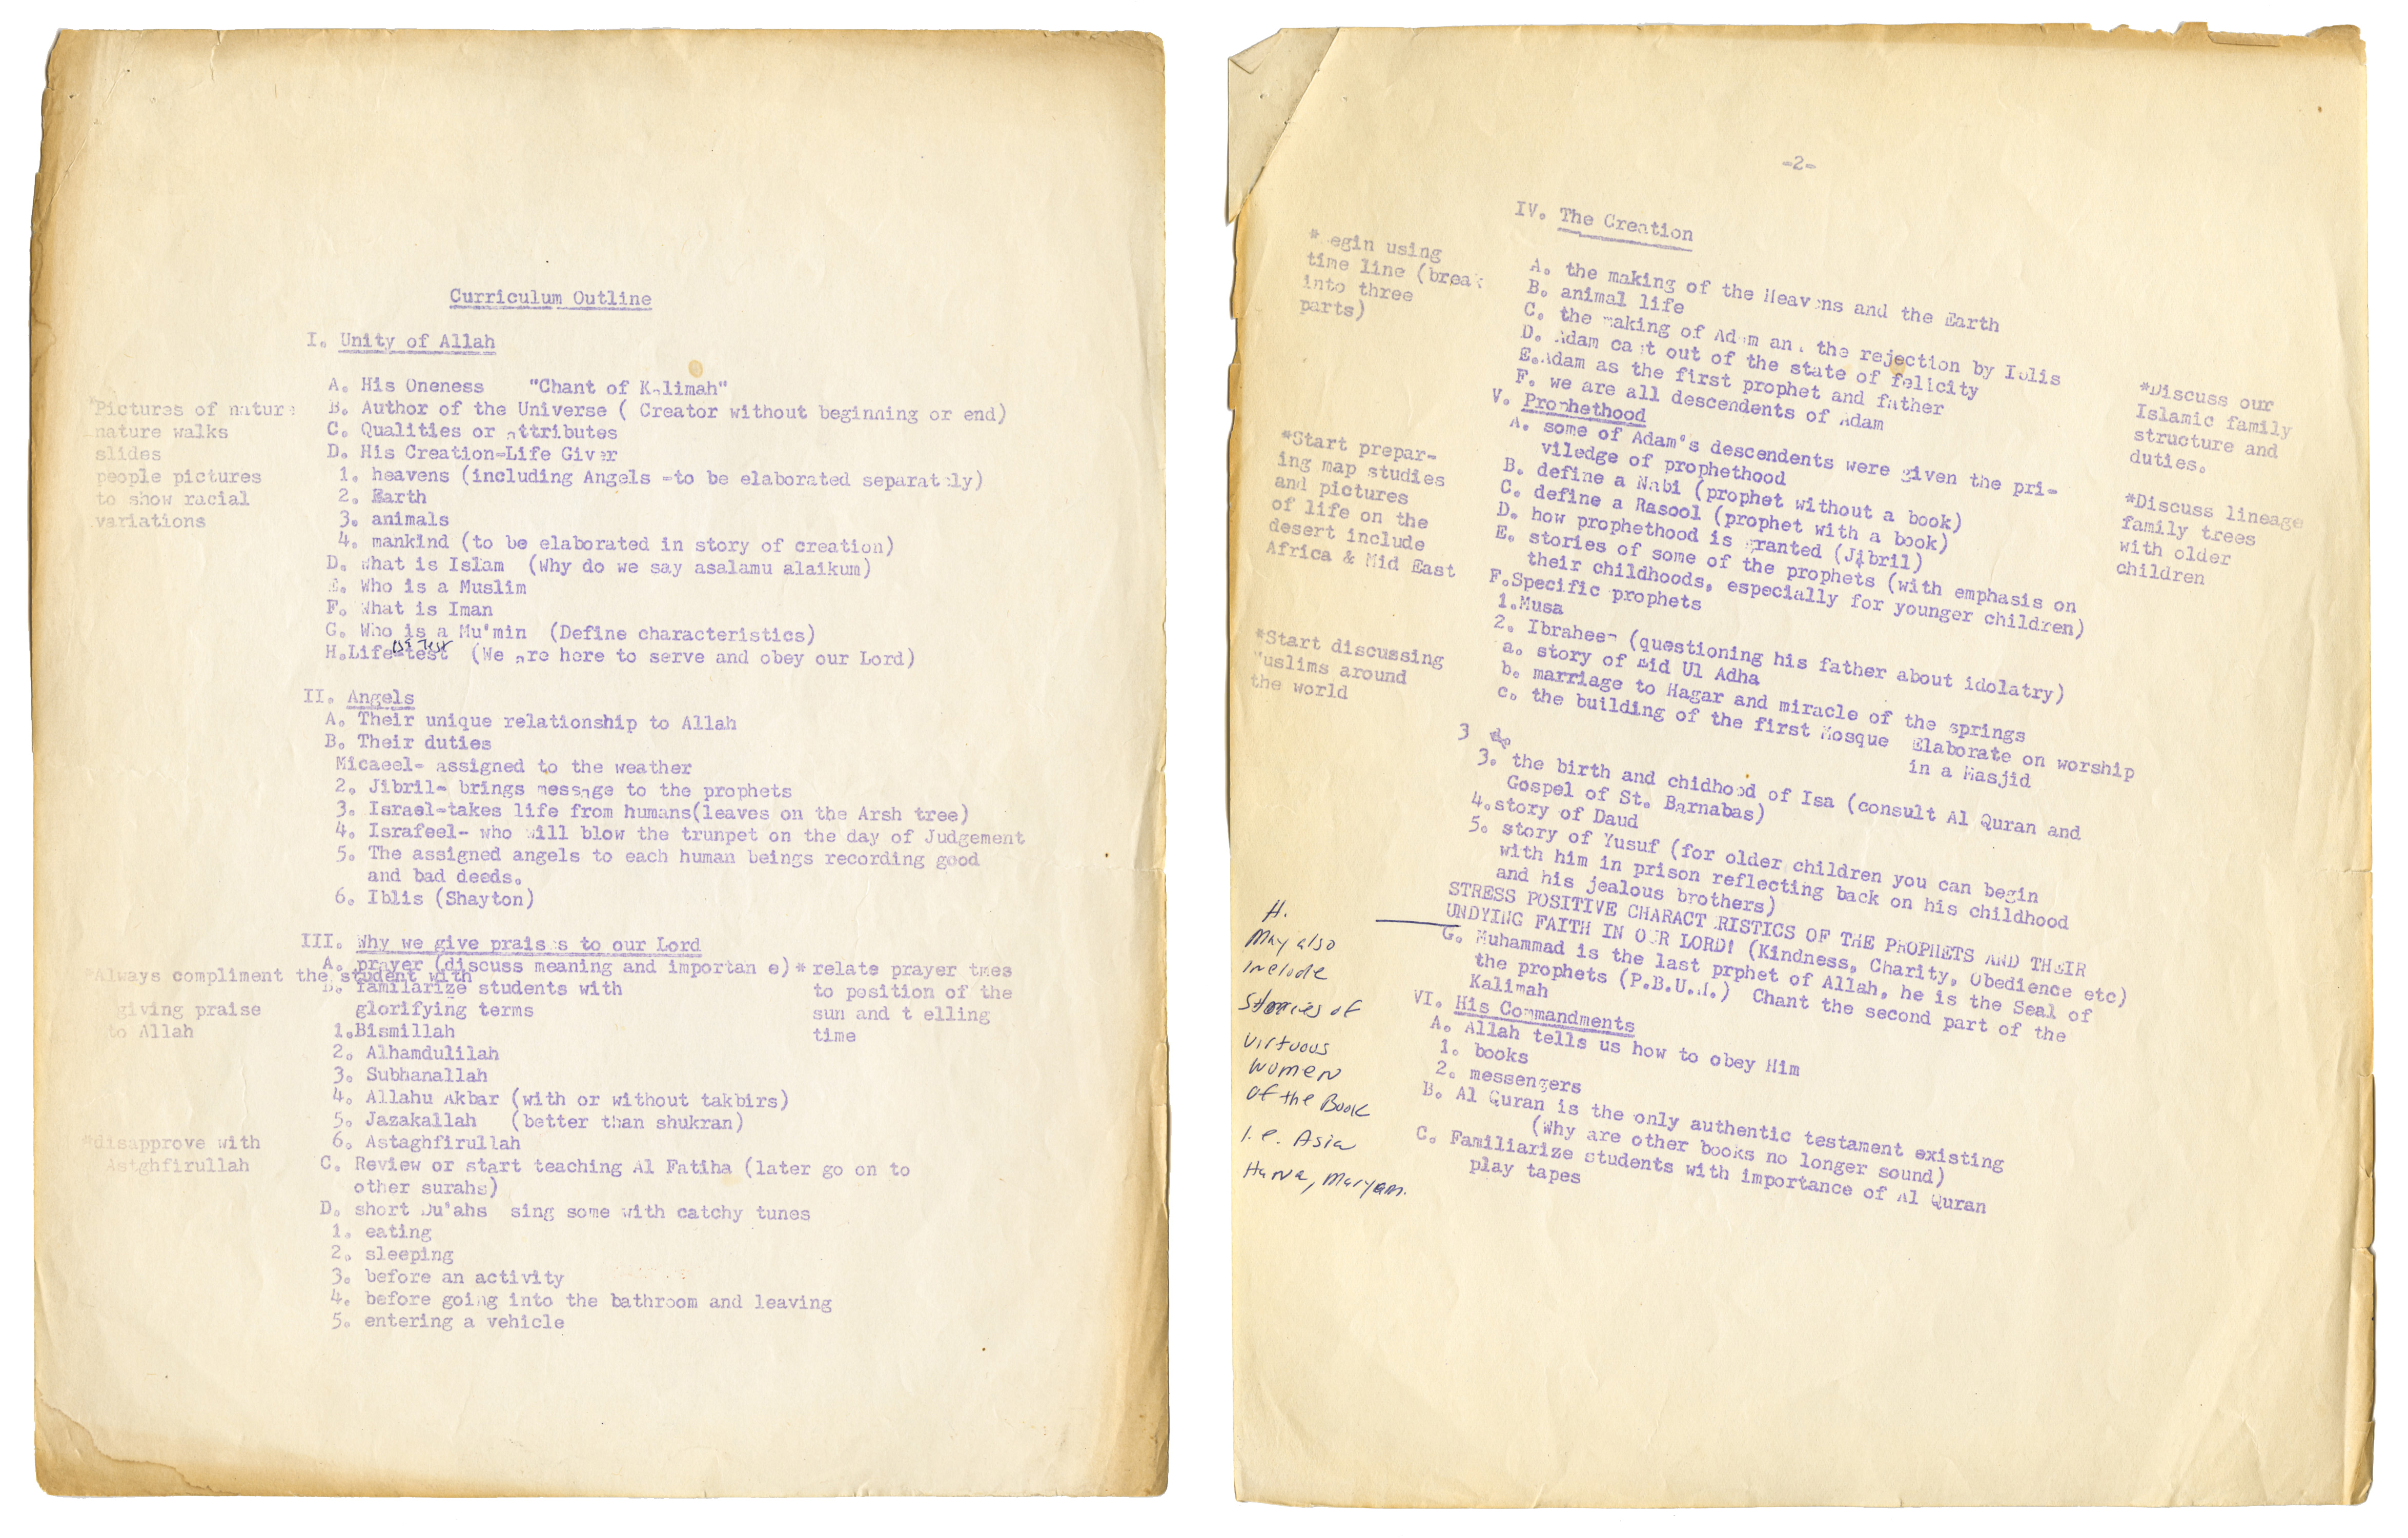 Curriculum Outline
I. Unity of Allah
A. His Oneness "Chant of Kalimah"
B. Author of the Universe ( Creator without beginning or end)
C. Qualities or attributes
D. His Creation-Life Giver
1. heavens (including Angels -to be elaborated separately)
2. Earth
3. animals
4. mankind (to be elaborated in story of creation)
D. What is Islam (Why do we say asalamu alaikum)
E. Who is a Muslim
F. What is Iman
G. Who is a Mu'min (Define characteristics)
is Test
H.Life-test (We are here to serve and obey our Lord)
*Pictures of nature
nature walks
slides
people pictures
to show racial
variations
II. Angels
A. Their unique relationship to Allah
B. Their duties
Micaeel- assigned to the weather
2. Jibril- brings message to the prophets
3. Israel-takes life from humans(leaves on the Arsh tree)
4. Israfeel- who will blow the trunpet on the day of Judgement
5. The assigned angels to each human beings recording good
and bad deeds.
6. Iblis (Shayton)
III. Why we give praises to our Lord
A. prayer (discuss meaning and importan e)
* relate prayer tmes
to position of the
sun and t elling
time
*Always compliment the student with
giving praise
to Allah
B. familarize students with
glorifying terms
1.Bismillah
2. Alhamdulilah
3. Subhanallah
4. Allahu Akbar (with or without takbirs)
5. Jazakallah (better than shukran)
6. Astaghfirullah
*disapprove with
Astghfirullah
C. Review or start teaching Al Fatiha (later go on to
other surahs)
D. short Du'ahs sing some with catchy tunes
1. eating
2. sleeping
3. before an activity
4. before going into the bathroom and leaving
5. entering a vehicle
-2-
IV. The Creation
* egin using
time line (break
into three
parts)
A. the making of the Heavens and the Earth
B. animal life
C. the making of Adam and the rejection by Iblis
D. Adam cast out of the state of felicity
E.Adam as the first prophet and father
F. we are all descendents of Adam
*Discuss our
Islamic family
structure and
duties.
V. Prophethood
A. some of Adam's descendents were given the pri-
viledge of prophethood
B. define a Nabi (prophet without a book)
C. define a Rasool (prophet with a book)
D. how prophethood is granted (Jibril)
E. stories of some of the prophets (with emphasis on
their childhoods, especially for younger children)
*Start prepar-
ing map studies
and pictures
of life on the
desert include
Africa & Mid East
*Discuss lineage
family trees
with older
children
F.Specific prophets
1.Musa
2. Ibraheem (questioning his father about idolatry)
a. story of Eid Ul Adha
b. marriage to Hagar and miracle of the springs
c. the building of the first Mosque Elaborate on worship
in a Masjid
*Start discussing
Muslims around
the world
3
3. the birth and chidhood of Isa (consult Al Quran and
Gospel of St. Barnabas)
4.story of Daud
5. story of Yusuf (for older children you can begin
with him in prison reflecting back on his childhood
and his jealous brothers)
STRESS POSITIVE CHARACT RISTICS OF THE PROPHETS AND THEIR
UNDYING FAITH IN OUR LORD! (Kindness, Charity, Obedience etc)
G. Muhammad is the last prphet of Allah, he is the Seal of
the prophets (P.B.U.H.) Chant the second part of the
Kalimah
H.
May also
include
stories of
virtuous
women
of the Book
i.e. Asia
Hawa, Maryam.
VI. His Commandments
A. Allah tells us how to obey Him
1. books
2. messengers
B. Al Quran is the only authentic testament existing
(Why are other books no longer sound)
C. Familiarize students with importance of Al Quran
play tapes